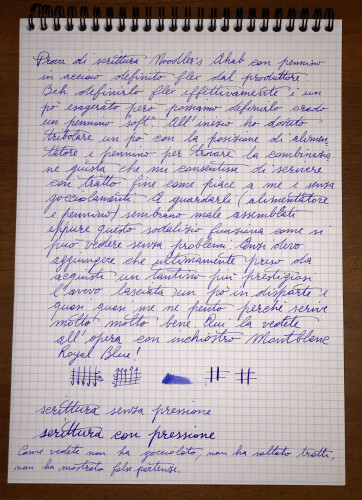 Prova di scrittura Noodler's Ahab con pennino
in acciaio definito flex dal produttore.
Beh definirlo flex effettivamente è un
po' esagerato però possiamo definirlo credo
un pennino "soft". All'inizio ho dovuto
tribolare un po' con la posizione di alimen-
tatore e pennino per trovare la combinazio
ne giusta che mi consentisse di scrivere
con tratto fine come piace a me e senza
gocciolamenti. A guardarli (alimentatore
e pennino) sembrano male assemblati
eppure questo sodalizio funziona come si
può vedere senza problemi. Anzi devo
aggiungere che ultimamente preso da
acquisti un tantino più prestigiosi
l'avevo lasciata un po' in disparte e
quasi quasi me ne pento perché scrive
molto molto bene. Qui la vedete
all'opera con inchiostro Montblanc
Royal Blue!
scrittura senza pressione
scrittura con pressione
Come vedete non ha gocciolato, non ha saltato tratti,
non ha mostrato false partenze.